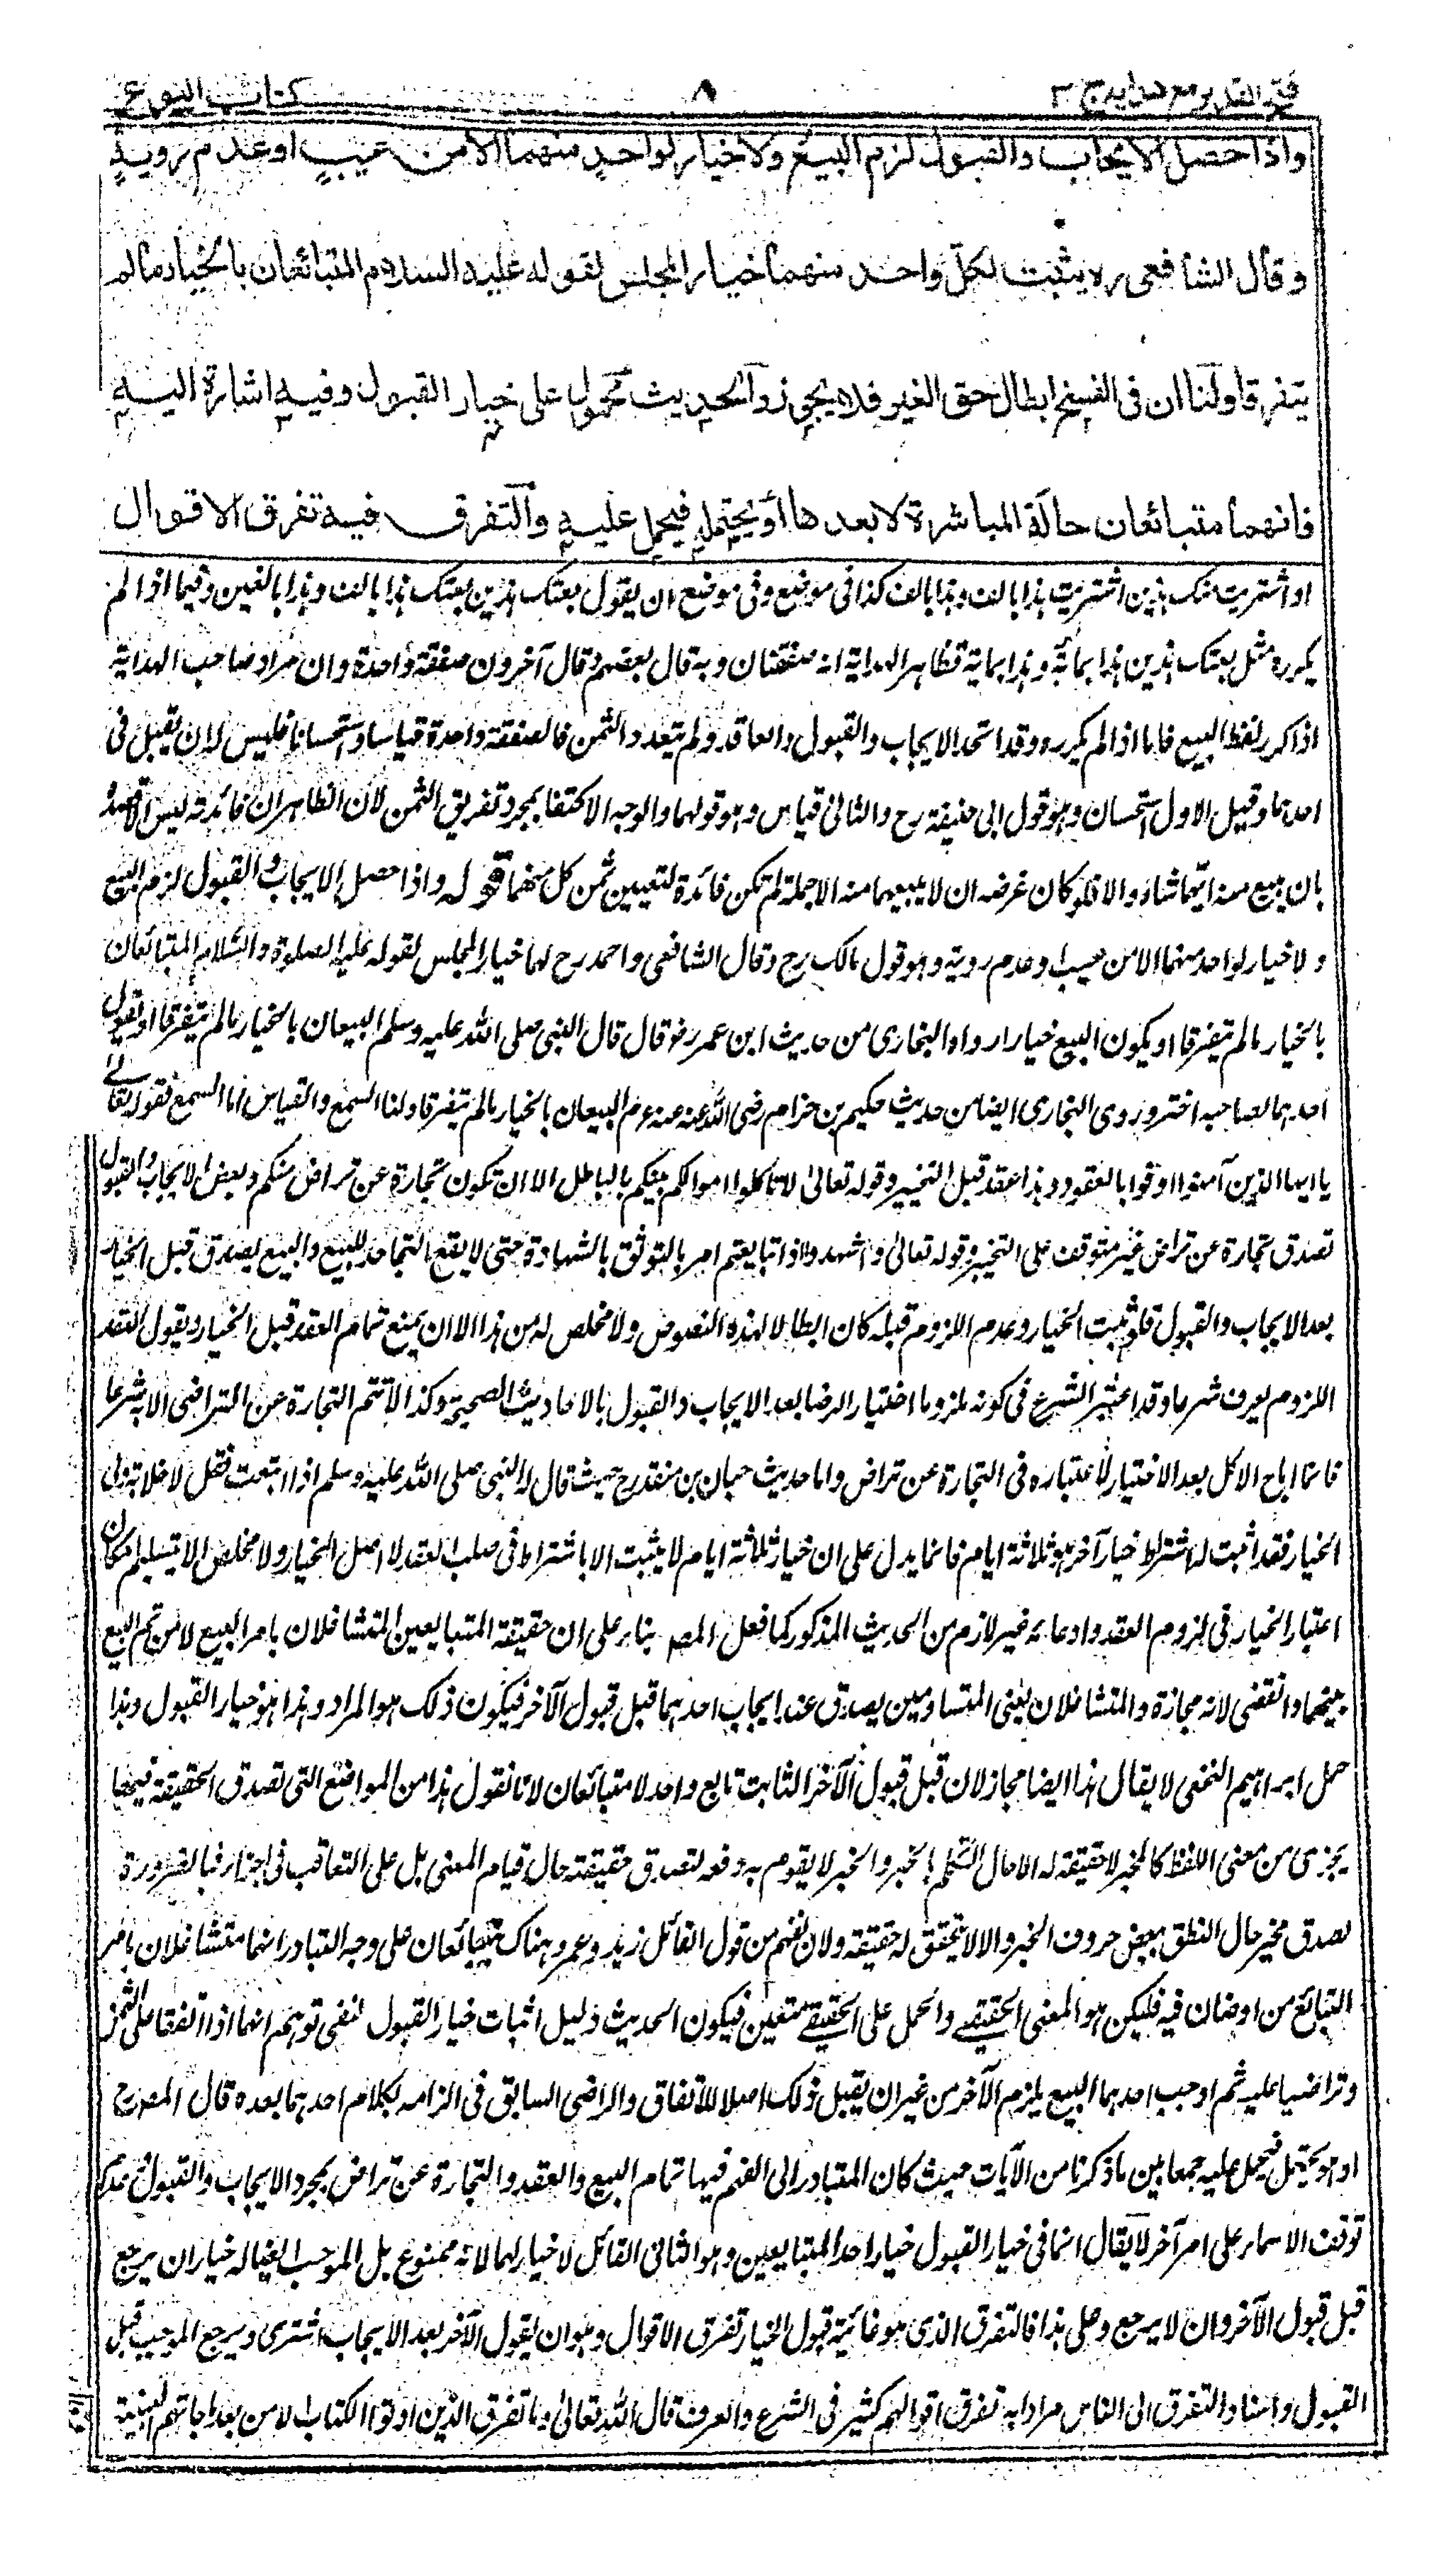 فتح القدير مع هدايه ج ٣ ٨ كتاب البيوع
واذا حصل الايجاب والقبول لزم البيع ولا خيار لواحد منهما الا من عيب او عدم روية
وقال الشافعى ره يثبت لكل واحد منهما خيار المجلس لقوله عليه السلام المتبائعان بالخيار مالم
يتفرقا ولنا ان فى الفسخ ابطال حق الغير فلا يجوز والحديث محمول على خيار القبول وفيه اشارة اليه
فانهما متبائعان حالة المباشرة لا بعدها او يحتمله فيحمل عليه والتفرق فيه تفرق الاقوال
او اشتريت منك هذين اشتريت هذا بالف وهذا بالف كذا فى موضع وفى موضع ان يقول بعتك هذين بعتك هذا بالف وهذا بالفين وفيما اذا لم
يكرره مثل بعتك هذين هذا بمائة وهذا بمائة فظاهر الهداية انه صفقتان وبه قال بعضهم وقال آخرون صفقة واحدة وان مراد صاحب الهداية
اذا كرر لفظ البيع فاما اذا لم يكرره وقد اتحد الايجاب والقبول والعاقد ولم يتعدد الثمن فالصفقة واحدة قياسا واستحسانا فليس له ان يقبل فى
احدهما وقيل الاول استحسان وهو قول ابى حنيفة رح والثانى قياس وهو قولهما والوجه الاكتفا بمجرد تفريق الثمن لان الظاهر ان فائدته ليس الا قصده
بان يبيع منه ايهما شاء والا فلو كان غرضه ان لا يبيعهما منه الا جملة لم تكن فائدة لتعيين ثمن كل منهما قوله واذا حصل الايجاب والقبول لزم البيع
ولا خيار لواحد منهما الا من عيب او عدم روية وهو قول مالك رح وقال الشافعى واحمد رح لهما خيار المجلس لقوله عليه الصلوة والسلام المتبائعان
بالخيار مالم يتفرقا او يكون البيع خيارا رواه البخارى من حديث ابن عمر رضو قال قال النبى صلى الله عليه وسلم البيعان بالخيار مالم يتفرقا او يقول
احدهما لصاحبه اختر وروى البخارى ايضا من حديث حكيم بن حزام رضى الله عنه عنه عم البيعان بالخيار مالم يتفرقا ولنا السمع والقياس اما السمع فقوله تعالى
يا ايها الذين آمنوا اوفوا بالعقود وهذا عقد قبل التخيير وقوله تعالى لا تاكلوا اموالكم بينكم بالباطل الا ان تكون تجارة عن تراض منكم وبعد الايجاب والقبول
تصدق تجارة عن تراض غير متوقف على التخيير وقوله تعالى واشهدوا اذا تبايعتم امر بالتوثق بالشهادة حتى لا يقع التجاحد للبيع والبيع يصدق قبل الخيار
بعد الايجاب والقبول فلو ثبت الخيار وعدم اللزوم قبله كان ابطالا لهذه النصوص ولا مخلص له من هذا الا ان يمنع تمام العقد قبل الخيار ويقول العقد
اللزوم يعرف شرعا وقد اعتبر الشرع فى كونه ملزوما اختيار الرضا بعد الايجاب والقبول بالاحاديث الصحيحة وكذا لا تتم التجارة عن التراضى الا به شرعا
فانما اباح الاكل بعد الاختيار لاعتباره فى التجارة عن تراض واما حديث حبان بن منقذ رح حيث قال له النبى صلى الله عليه وسلم اذا ابتعت فقل لا خلابة ولى
الخيار فقد اثبت له اشتراط خيار آخر هو ثلاثة ايام فانما يدل على ان خيار ثلاثة ايام لا يثبت الا باشتراط فى صلب العقد لا اصل الخيار ولا مخلص الا بتسليم امكان
اعتبار الخيار فى لزوم العقد وادعا انه غير لازم من الحديث المذكور كما فعل المصـ بناء على ان حقيقة المتبايعين المتشاغلان بامر البيع لا من تم البيع
بينهما وانقضى لانه مجاز والمتشاغلان يعنى المتساومين يصدق عند ايجاب احدهما قبل قبول الآخر فيكون ذلك هو المراد وهذا هو خيار القبول وهذا
حمل ابراهيم النخعى لا يقال هذا ايضا مجاز لان قبل قبول الآخر الثابت بائع واحد لا متبائعان لانا نقول هذا من المواضع التى تصدق الحقيقة فيها
بجزء من معنى اللفظ كالمخبر لا حقيقة له الا حال التكلم بالخبر والخبر لا يقوم به دفعة لتصدق حقيقته حال قيام المعنى بل على التعاقب فى اجزاء فبالضرورة
تصدق مخبر حال النطق ببعض حروف الخبر والا لا يتحقق له حقيقة ولان نفهم من قول القائل زيد وعمرو هناك متبائعان على وجه التبادر انهما متشاغلان بامر
التبائع من اوضان فيه فليكن هو المعنى الحقيقى والحمل على الحقيقى متعين فيكون الحديث دليل اثبات خيار القبول لنفى توهم انهما اذا اتفقا على الثمن
وتراضيا عليه ثم اوجب احدهما البيع يلزم الآخر من غير ان يقبل ذلك اصلا للاتفاق والراضى السابق فى الزامه بكلام احدهما بعده قال المصرح
او هو يحتمل فيحمل عليه جمعا بين ما ذكرنا من الآيات حيث كان المتبادر الى الفهم فيها تمام البيع والعقد والتجارة عن تراض بمجرد الايجاب والقبول
توقف الاسماء على امر آخر لا يقال انما فى خيار القبول خيار احد المتبايعين وهو الثانى القائل لا خيار لهما لانه ممنوع بل الموجب ايضا له خيار ان يرجع
قبل قبول الآخر وان لا يرجع وعلى هذا فالتفرق الذى هو غائية قبول الخيار تفرق الاقوال وهو ان يقول الآخر بعد الايجاب لا اشترى ويرجع الموجب قبل
القبول واسناد التفرق الى الناس مرادا به تفرق اقوالهم كثير فى الشرع والعرف قال الله تعالى وما تفرق الذين اوتوا الكتاب الا من بعد ما جاءتهم البينة